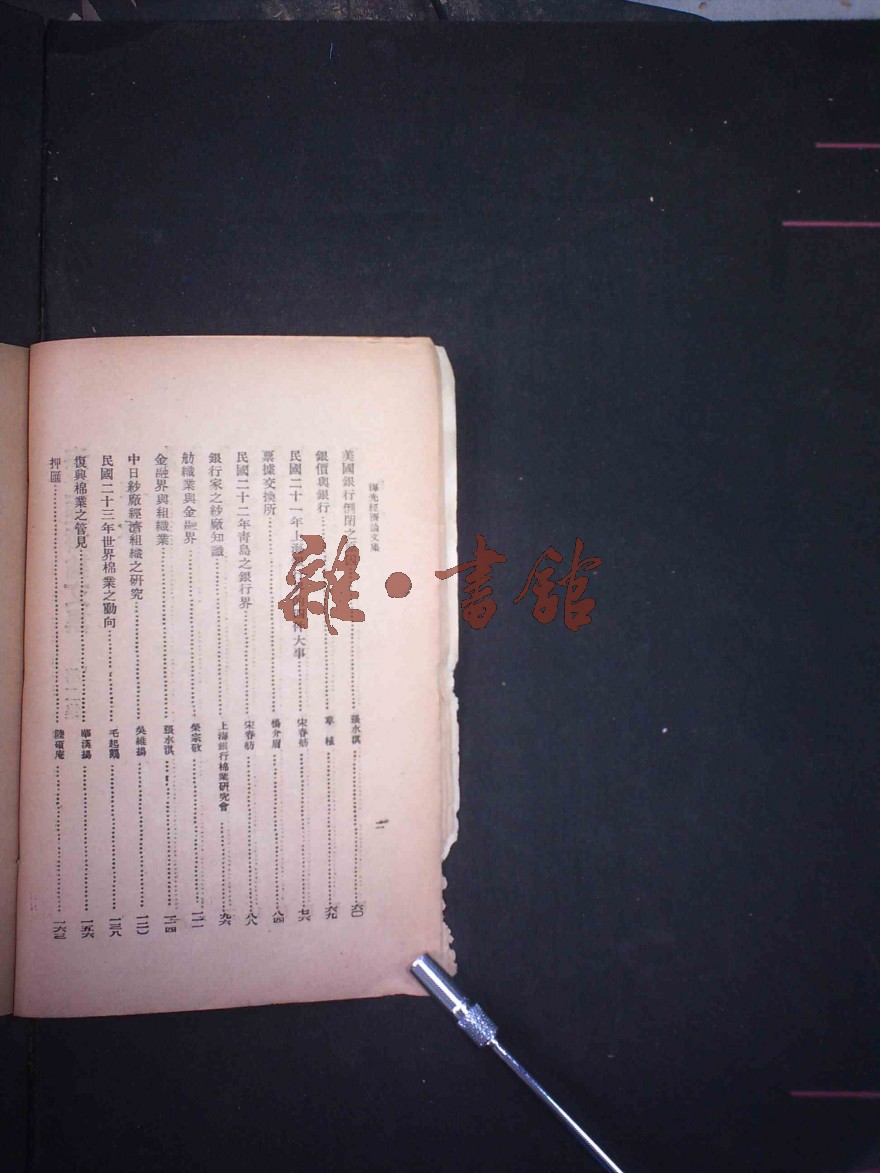 先經濟論文集
二
美國銀行倒閉之 張水淇 六〇
銀價與銀行 植 六九
民國二十一年上海 大事 宋春舫 七六
票據交換所 楊介眉 八四
民國二十二年青島之銀行界 宋春舫 八八
銀行家之紗廠知識 上海銀行棉業研究會 九六
紡織業與金融界 榮宗敬
金融界與組織業 張水淇
中日紗廠經濟組織之研究 吳維揚
民國二十三年世界棉業之動向 毛起鷴 一三八
復興棉業之管見 漢揚 一五六
押匯 陸碩庵 一六三
雜·書館